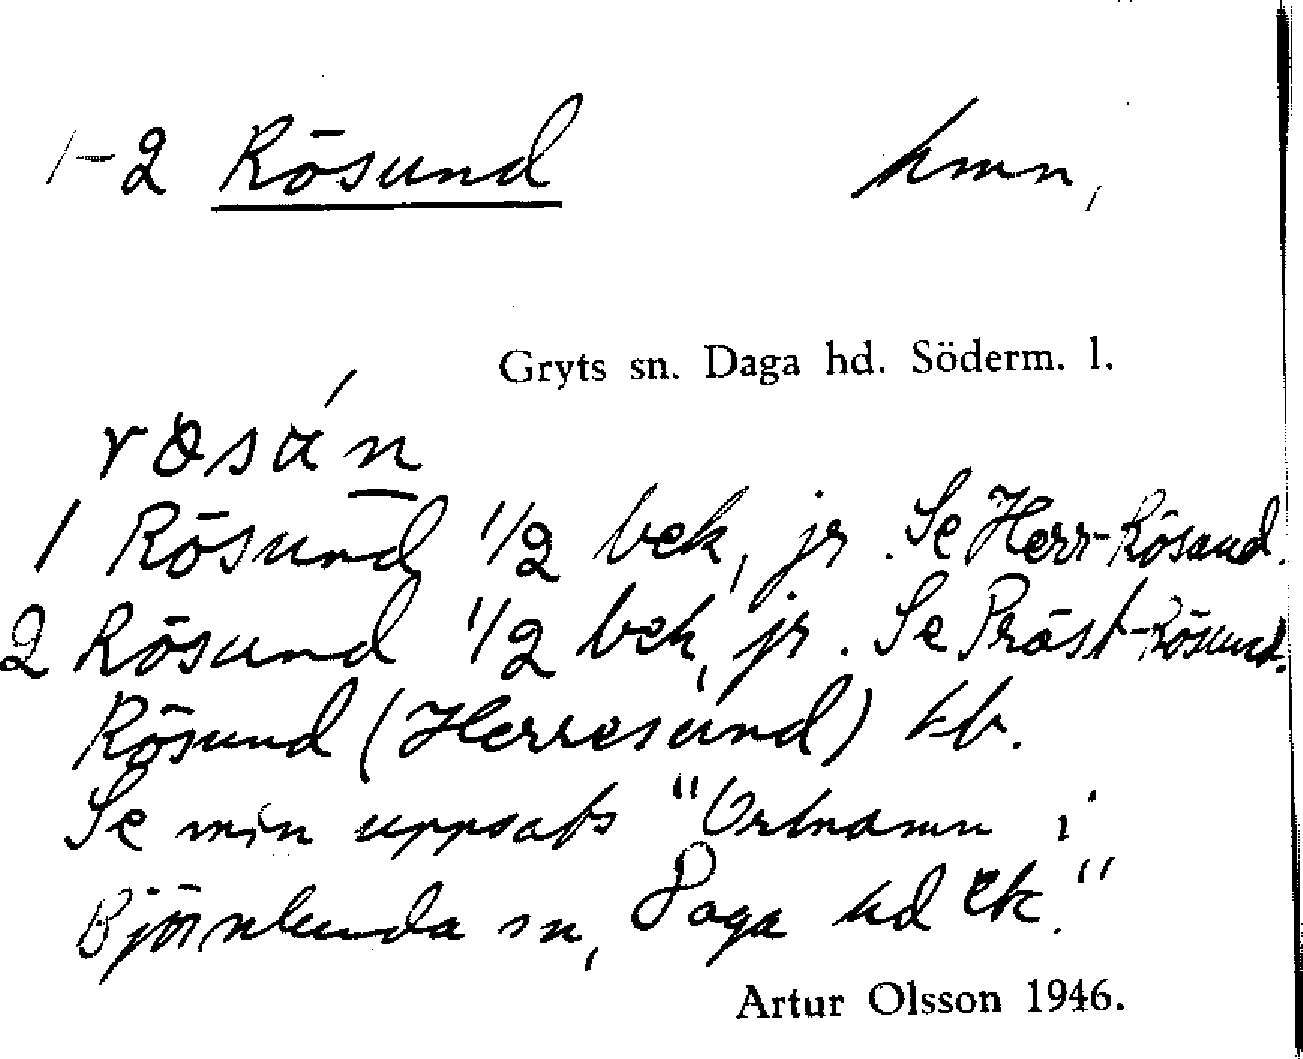 1-2 Rösund hmn,
Gryts sn. Daga hd. Söderm. l.
1 Rösund 1/2 bek, jr. Se Herr-Rösund.
2 Rösund 1/2 bek, jr. Se Präst-Rösund.
Rösund (Herresund) kb.
Se min uppsats "Ortnamn i
Björnlunda sn, Daga hd
Artur Olsson 1946.